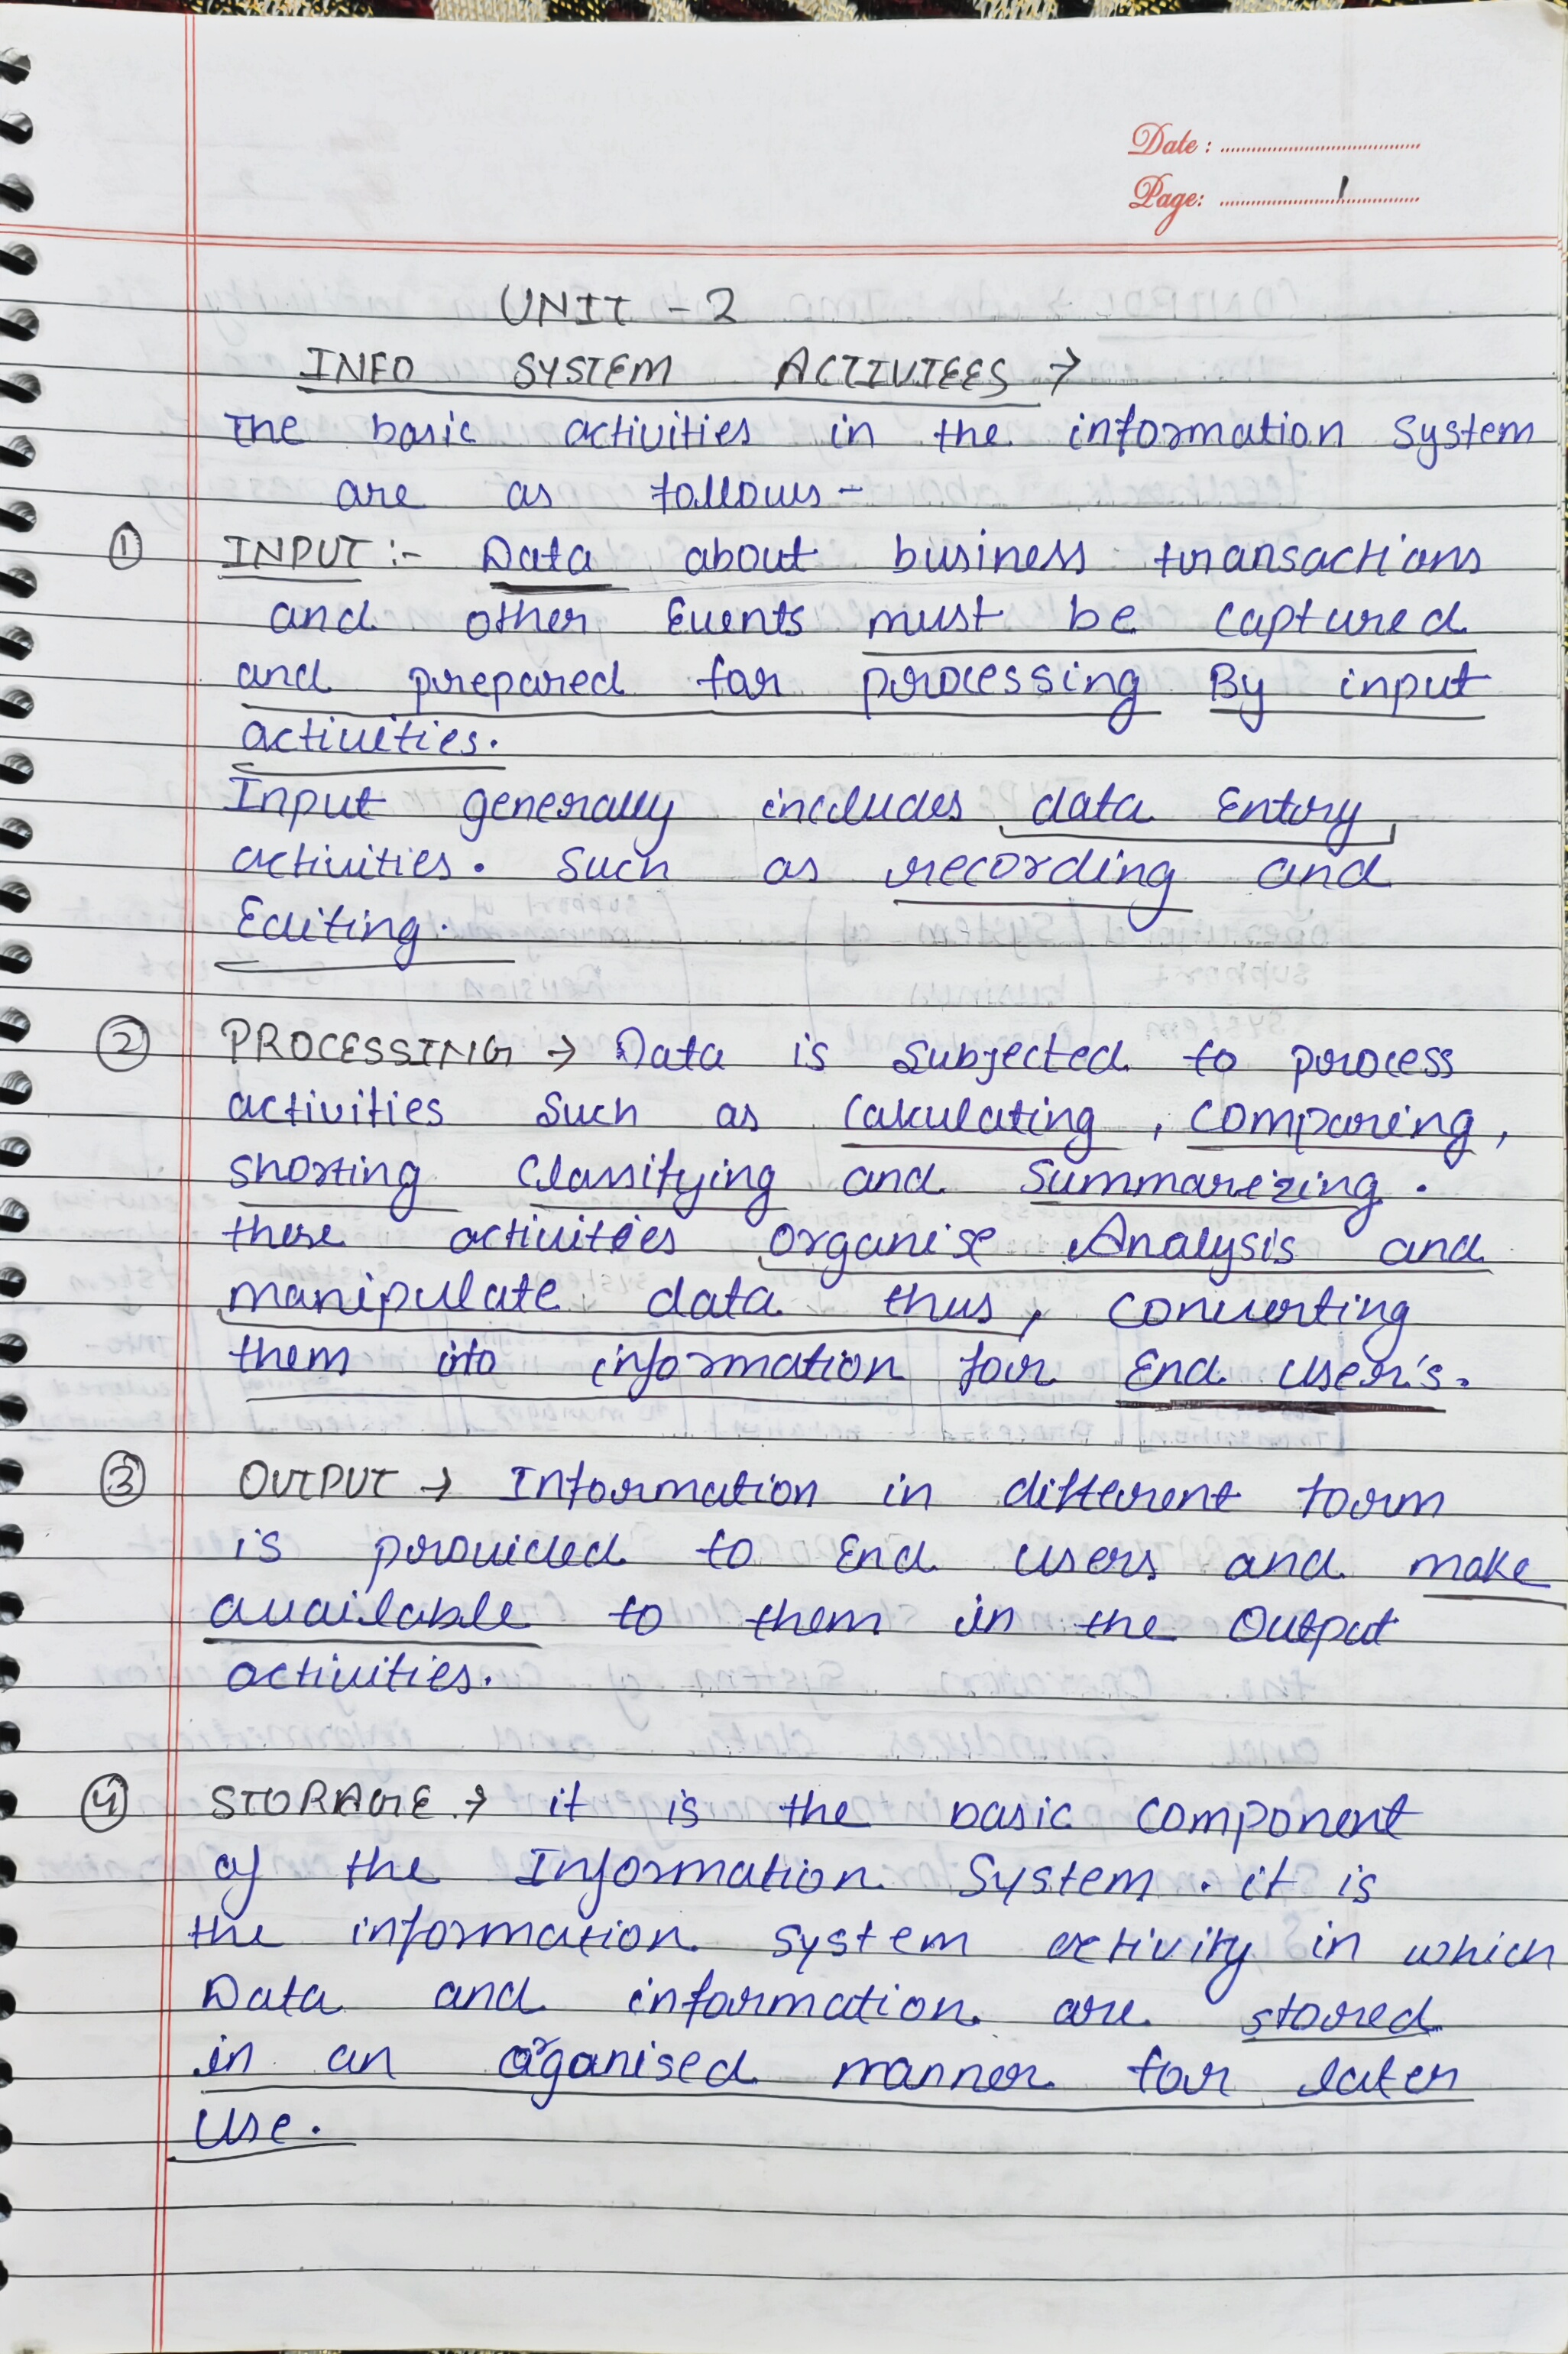 Date :
Page: 1
UNIT - 2
INFO SYSTEM ACTIVTEES →
The basic activities in the information System
are as follows -
① INPUT :- Data about business transactions
and other Events must be captured
and prepared for processing By input
activities.
Input generally includes data Entry
activities. Such as recording and
Editing.
② PROCESSING → Data is subjected to process
activities such as Calculating, Comparing,
shorting Classifying and Summareizing.
these activities organise Analysis and
manipulate data thus, Converting
them into information for End User's.
③ OUTPUT → Information in different form
is provided to End users and make
available to them in the Output
activities.
④ STORAGE → it is the basic Component
of the Information System. it is
the information system activity in which
Data and information are stored
in an organised manner for later
Use.